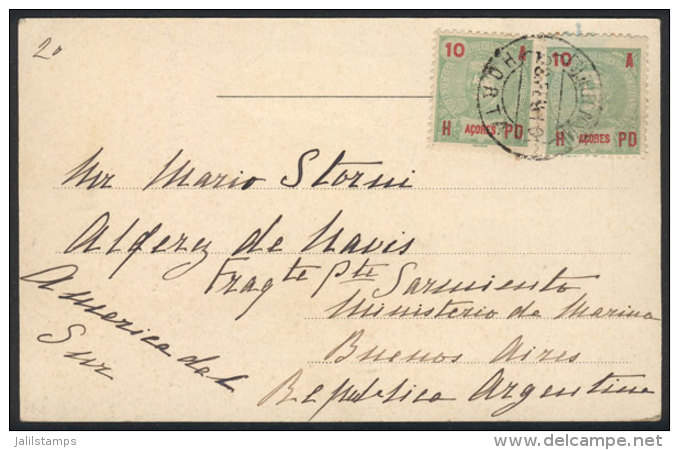 2
10 A
H AÇORES PD
10 A
H AÇORES PD
HORTA
Mr Mario Storni
Alferez de Navio
Fragte Pte Sarmiento
Ministerio de Marina
Buenos Aires
Republica Argentina
America del
Sur
jalilstamps
www.delcampe.net